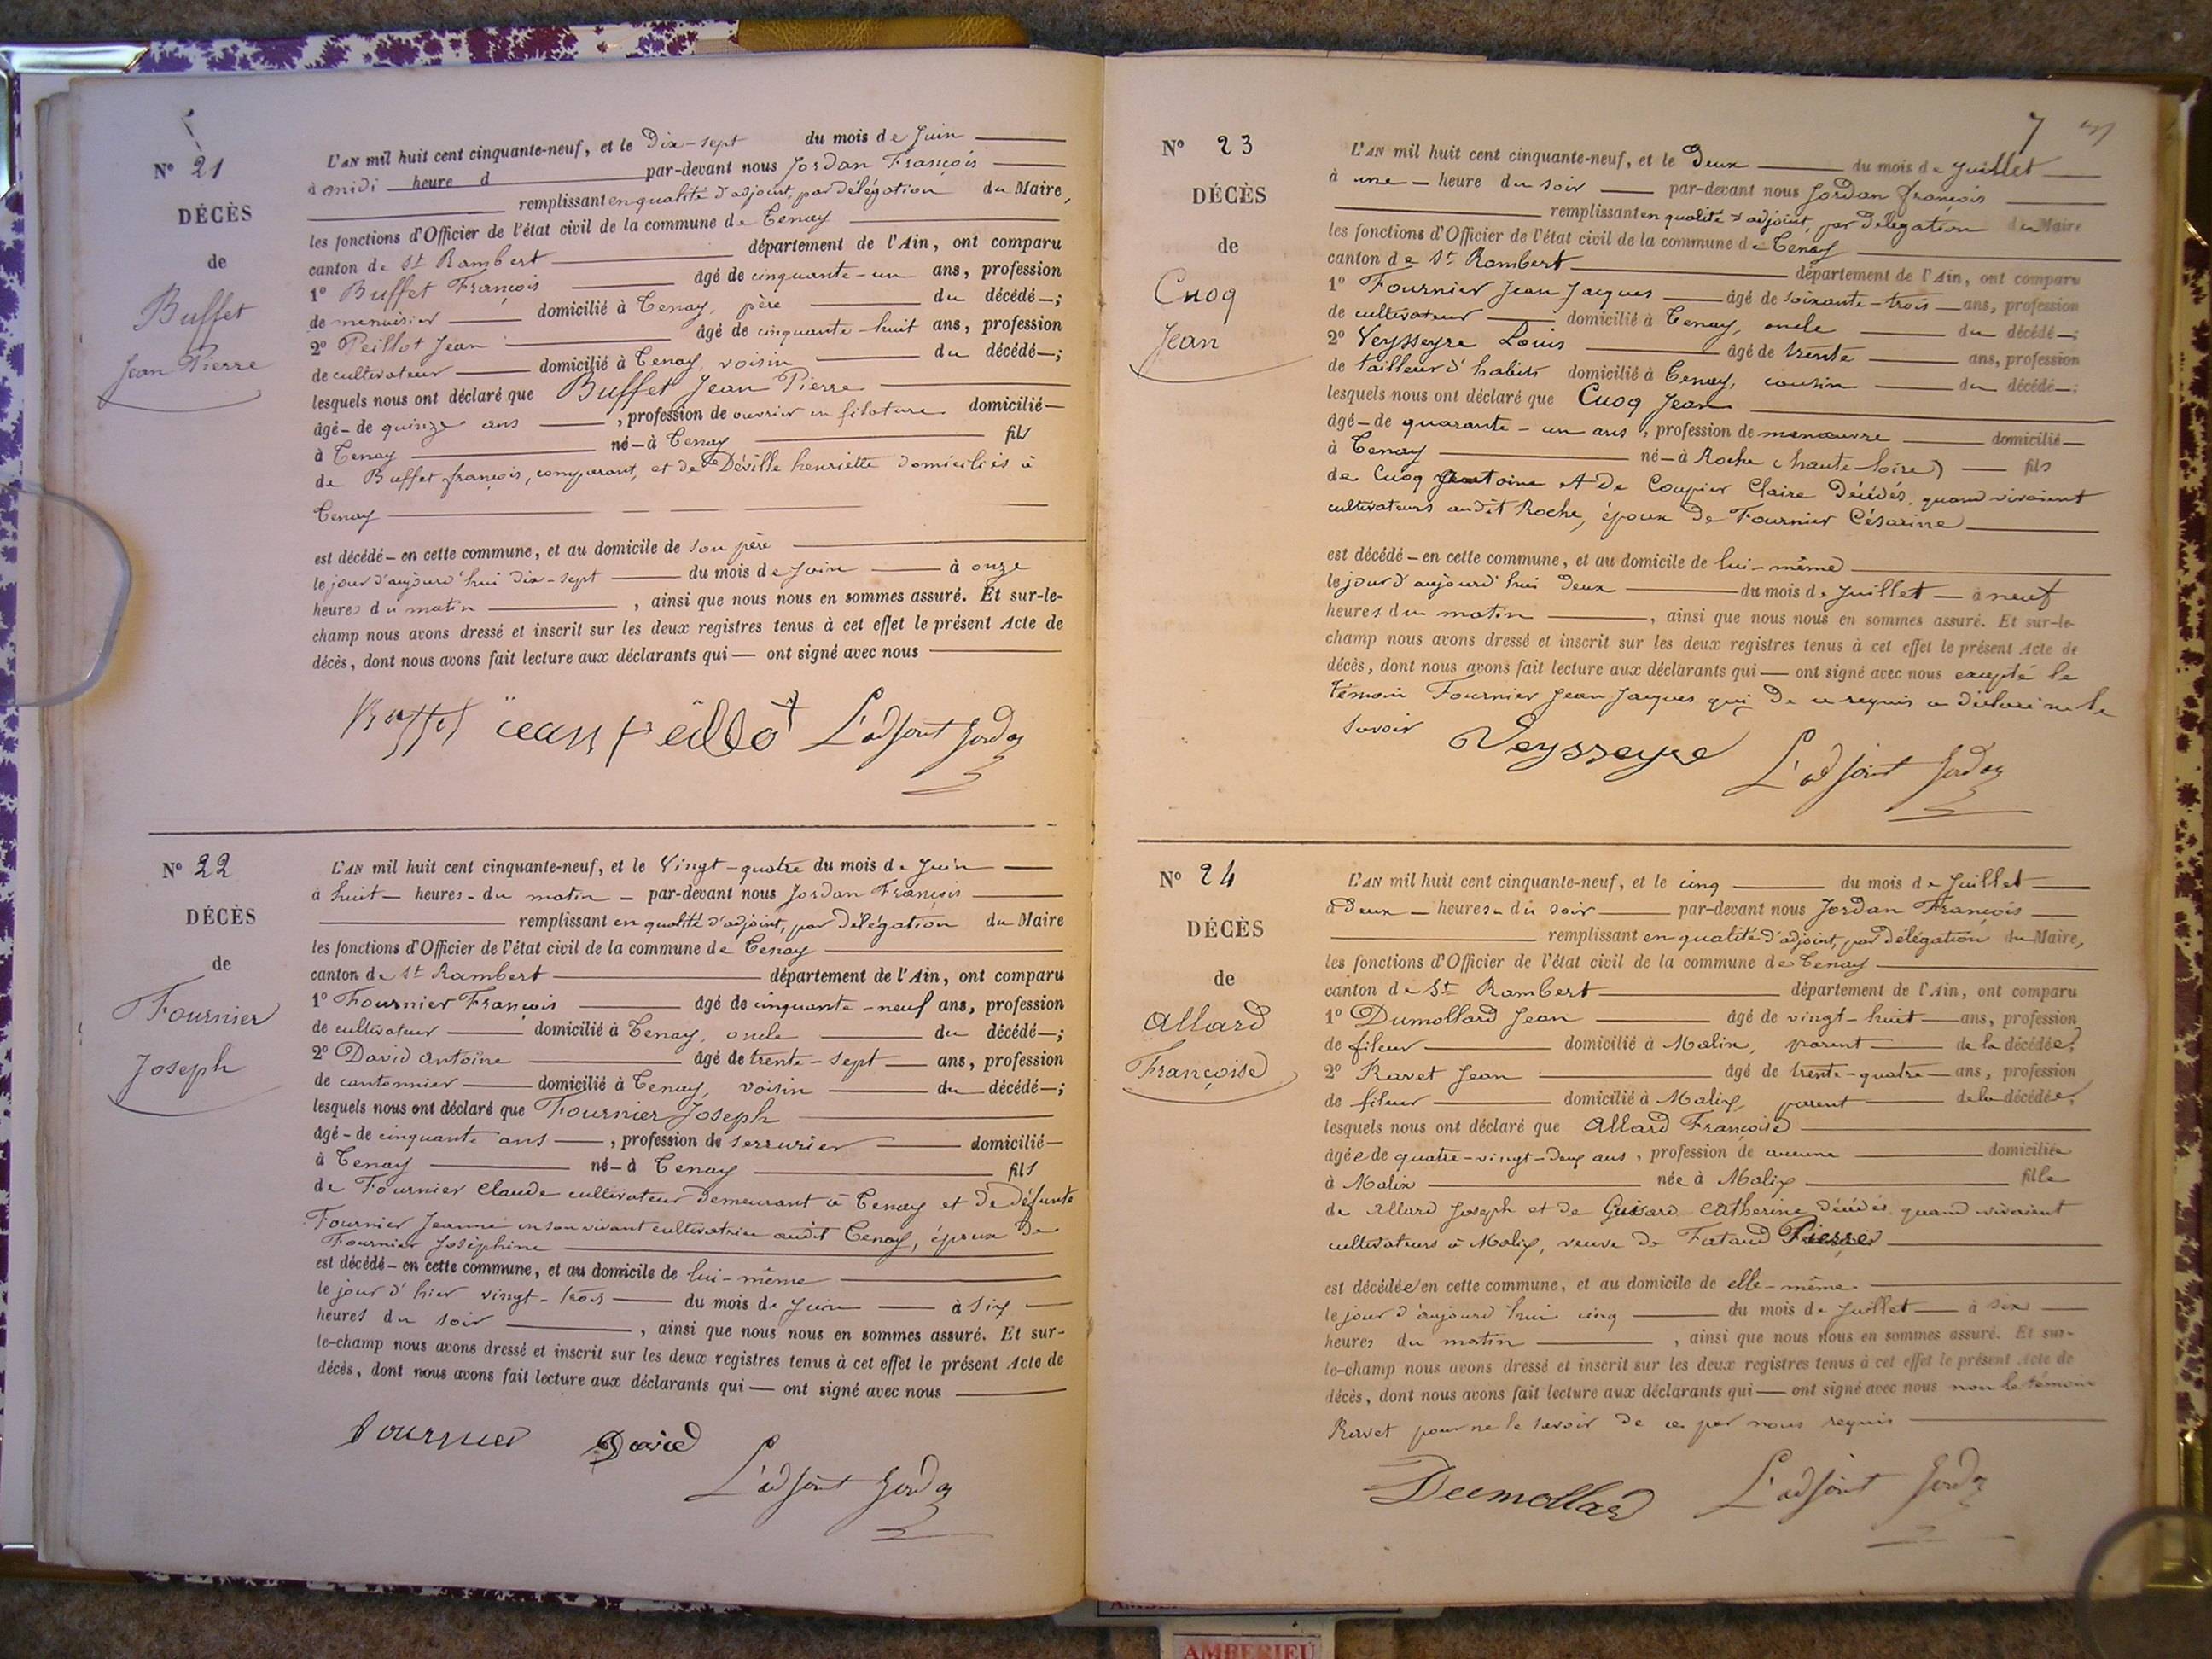 N° 21
DÉCÈS
de
Buffet
Jean Pierre
L'AN mil huit cent cinquante-neuf, et le Dix-sept du mois de Juin
à midi heure d par-devant nous Jordan François
remplissant en qualité d'adjoint, par délégation du Maire,
les fonctions d'Officier de l'état civil de la commune de Tenay
canton de St Rambert département de l'Ain, ont comparu
1° Buffet François âgé de cinquante-un ans, profession
de menuisier domicilié à Tenay, père du décédé ;
2° Peillot Jean âgé de cinquante-huit ans, profession
de cultivateur domicilié à Tenay, voisin du décédé ;
lesquels nous ont déclaré que Buffet Jean Pierre
âgé de quinze ans , profession de ouvrier en filature domicilié
à Tenay né à Tenay fils
de Buffet françois, comparant, et de Déville henriette domiciliés à
Tenay
est décédé en cette commune, et au domicile de son père
le jour d'aujourd'hui dix-sept du mois de Juin à onze
heures du matin , ainsi que nous nous en sommes assuré. Et sur-le-
champ nous avons dressé et inscrit sur les deux registres tenus à cet effet le présent Acte de
décès, dont nous avons fait lecture aux déclarants qui ont signé avec nous
Buffet jean peillot L'adjoint Jordan
N° 22
DÉCÈS
de
Fournier
Joseph
L'AN mil huit cent cinquante-neuf, et le Vingt-quatre du mois de Juin
à huit heures du matin par-devant nous Jordan François
remplissant en qualité d'adjoint, par délégation du Maire
les fonctions d'Officier de l'état civil de la commune de Tenay
canton de St Rambert département de l'Ain, ont comparu
1° Fournier François âgé de cinquante-neuf ans, profession
de cultivateur domicilié à Tenay, oncle du décédé ;
2° David antoine âgé de trente-sept ans, profession
de cantonnier domicilié à Tenay, voisin du décédé ;
lesquels nous ont déclaré que Fournier Joseph
âgé de cinquante ans , profession de serrurier domicilié
à Tenay né à Tenay fils
de Fournier Claude cultivateur demeurant à Tenay et de défunte
Fournier Jeanne en son vivant cultivatrice audit Tenay, époux de
Fournier Joséphine
est décédé en cette commune, et au domicile de lui-même
le jour d'hier vingt-trois du mois de Juin à six
heures du soir , ainsi que nous nous en sommes assuré. Et sur-
le-champ nous avons dressé et inscrit sur les deux registres tenus à cet effet le présent Acte de
décès, dont nous avons fait lecture aux déclarants qui ont signé avec nous
Fournier David
L'adjoint Jordan
7
N° 23
DÉCÈS
de
Cuoq
Jean
L'AN mil huit cent cinquante-neuf, et le Deux du mois de Juillet
à une heure du soir par-devant nous Jordan françois
remplissant en qualité d'adjoint, par délégation du Maire
les fonctions d'Officier de l'état civil de la commune de Tenay
canton de St Rambert département de l'Ain, ont comparu
1° Fournier Jean Jacques âgé de soixante-trois ans, profession
de cultivateur domicilié à Tenay, oncle du décédé ;
2° Veysseyre Louis âgé de trente ans, profession
de tailleur d'habits domicilié à Tenay, cousin du décédé ;
lesquels nous ont déclaré que Cuoq Jean
âgé de quarante-un ans , profession de manœuvre domicilié
à Tenay né à Roche (haute-loire) fils
de Cuoq antoine et de Coupier Claire décédés, quand vivaient
cultivateurs audit Roche, époux de Fournier Césarine
est décédé en cette commune, et au domicile de lui-même
le jour d'aujourd'hui Deux du mois de Juillet à neuf
heures du matin , ainsi que nous nous en sommes assuré. Et sur-le-
champ nous avons dressé et inscrit sur les deux registres tenus à cet effet le présent Acte de
décès, dont nous avons fait lecture aux déclarants qui ont signé avec nous excepté le
témoin Fournier Jean Jacques qui de ce requis a déclaré ne le
savoir
Veysseyre L'adjoint Jordan
N° 24
DÉCÈS
de
Allard
Françoise
L'AN mil huit cent cinquante-neuf, et le cinq du mois de Juillet
à Deux heures du soir par-devant nous Jordan François
remplissant en qualité d'adjoint, par délégation du Maire,
les fonctions d'Officier de l'état civil de la commune de Tenay
canton de St Rambert département de l'Ain, ont comparu
1° Dumollard Jean âgé de vingt-huit ans, profession
de fileur domicilié à Malix, parent de la décédée,
2° Ravet Jean âgé de trente-quatre ans, profession
de fileur domicilié à Malix, parent de la décédée,
lesquels nous ont déclaré que Allard Françoise
âgée de quatre-vingt-deux ans , profession de aucune domiciliée
à Malix née à Malix fille
de Allard Joseph et de Guisard Catherine décédés, quand vivaient
cultivateurs à Malix, veuve de Futaud Pierre
est décédée en cette commune, et au domicile de elle-même
le jour d'aujourd'hui cinq du mois de Juillet à six
heures du matin , ainsi que nous nous en sommes assuré. Et sur-
le-champ nous avons dressé et inscrit sur les deux registres tenus à cet effet le présent Acte de
décès, dont nous avons fait lecture aux déclarants qui ont signé avec nous non le témoin
Ravet pour ne le savoir de ce par nous requis
Dumollard L'adjoint Jordan
AMBERIEU